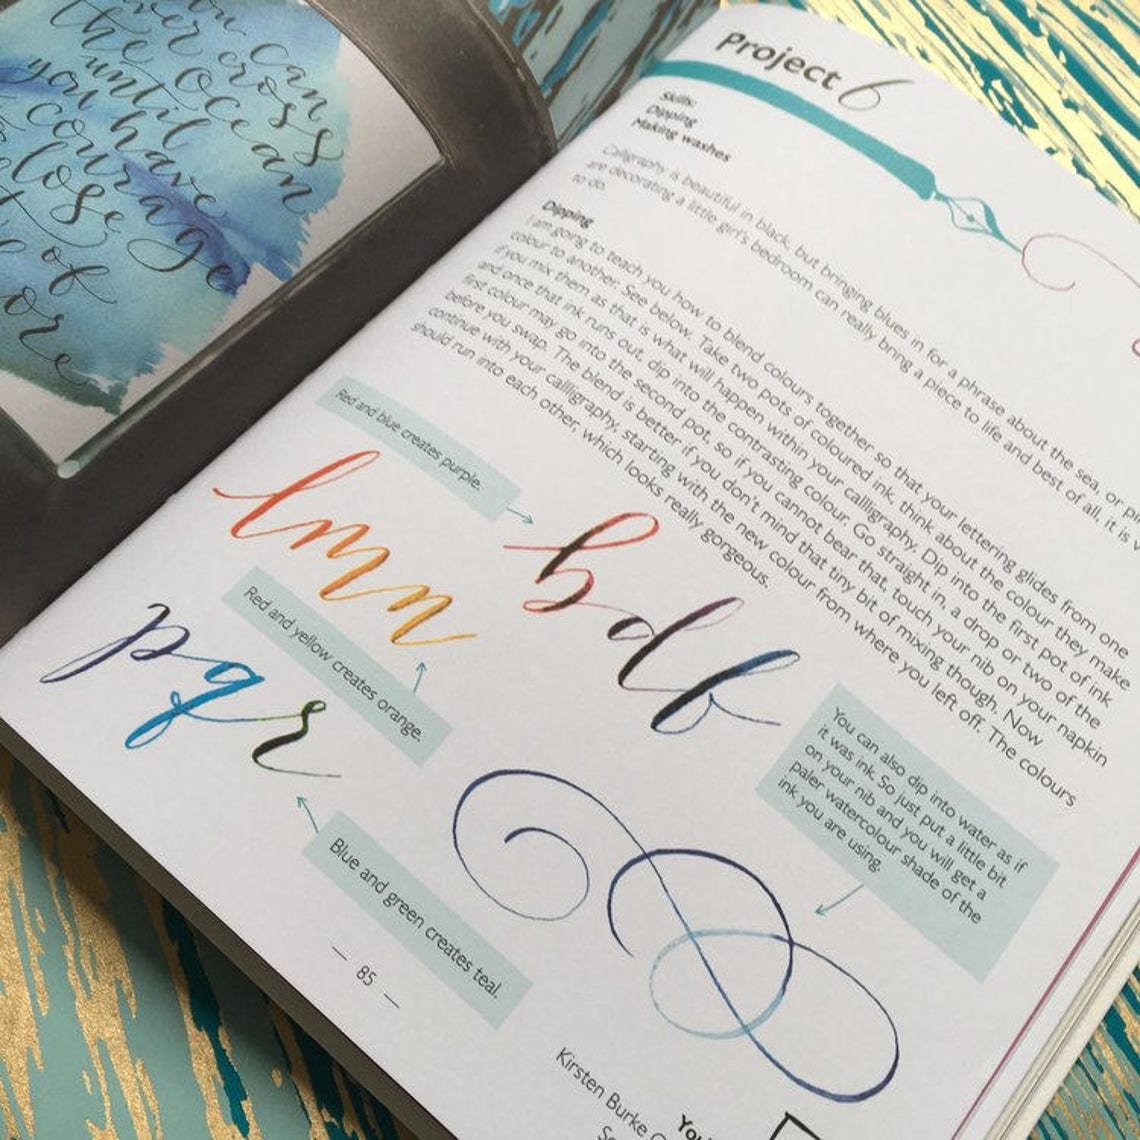 you can
never cross
the ocean
until
you have
courage
lose
of
ore
Project 6
Skills:
Dipping
Making washes
Calligraphy is beautiful in black, but bringing blues in for a phrase about the sea, or
are decorating a little girl's bedroom can really bring a piece to life and best of all, it is
to do.
Dipping
I am going to teach you how to blend colours together so that your lettering glides from one
colour to another. See below. Take two pots of coloured ink, think about the colour they make
if you mix them as that is what will happen within your calligraphy. Dip into the first pot of ink
and once that ink runs out, dip into the contrasting colour. Go straight in, a drop or two of the
first colour may go into the second pot, so if you cannot bear that, touch your nib on your napkin
before you swap. The blend is better if you don't mind that tiny bit of mixing though. Now
continue with your calligraphy, starting with the new colour from where you left off. The colours
should run into each other, which looks really gorgeous.
Red and blue creates purple.
lmn
bdf
Red and yellow creates orange.
pqr
You can also dip into water as if
it was ink. So just put a little bit
on your nib and you will get a
paler watercolour shade of the
ink you are using.
Blue and green creates teal.
— 85 —
Kirsten Burke